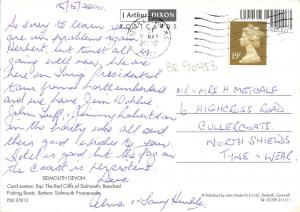 15/5/2000.
So sorry to learn you
are in problems again
Herbert, but trust all is
going well now, We are
here on Tony Presidential
tour from Northumberland
and we have Jim Dobbie
John Tuff, Jimmy Robertson
in the party who all send
their good wishes to you.
Hotel is good but the fog on
the Coast is persistent
Love
Alma & Tony Humble.
SIDMOUTH DEVON
Card scenes: Top: The Red Cliffs of Sidmouth; Beached
Fishing Boats. Bottom: Sidmouth Promenade.
PSD 27813
1 Arthur DIXON
POSTCARDS
MAY
2000
19
BR 90753
MR & MRS H METCALF
6 HIGHCROSS ROAD
CULLERCOATS.
NORTH SHIELDS
TYNE & WEAR.
Published by John Hinde (U.K.) Ltd., Redruth, Cornwall.
Tel: 01209 211111